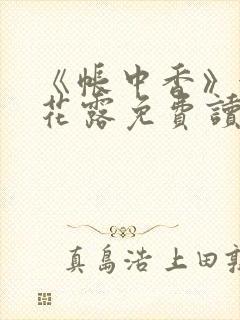 《帳中香》
花露免費讀
真島浩 上田敦